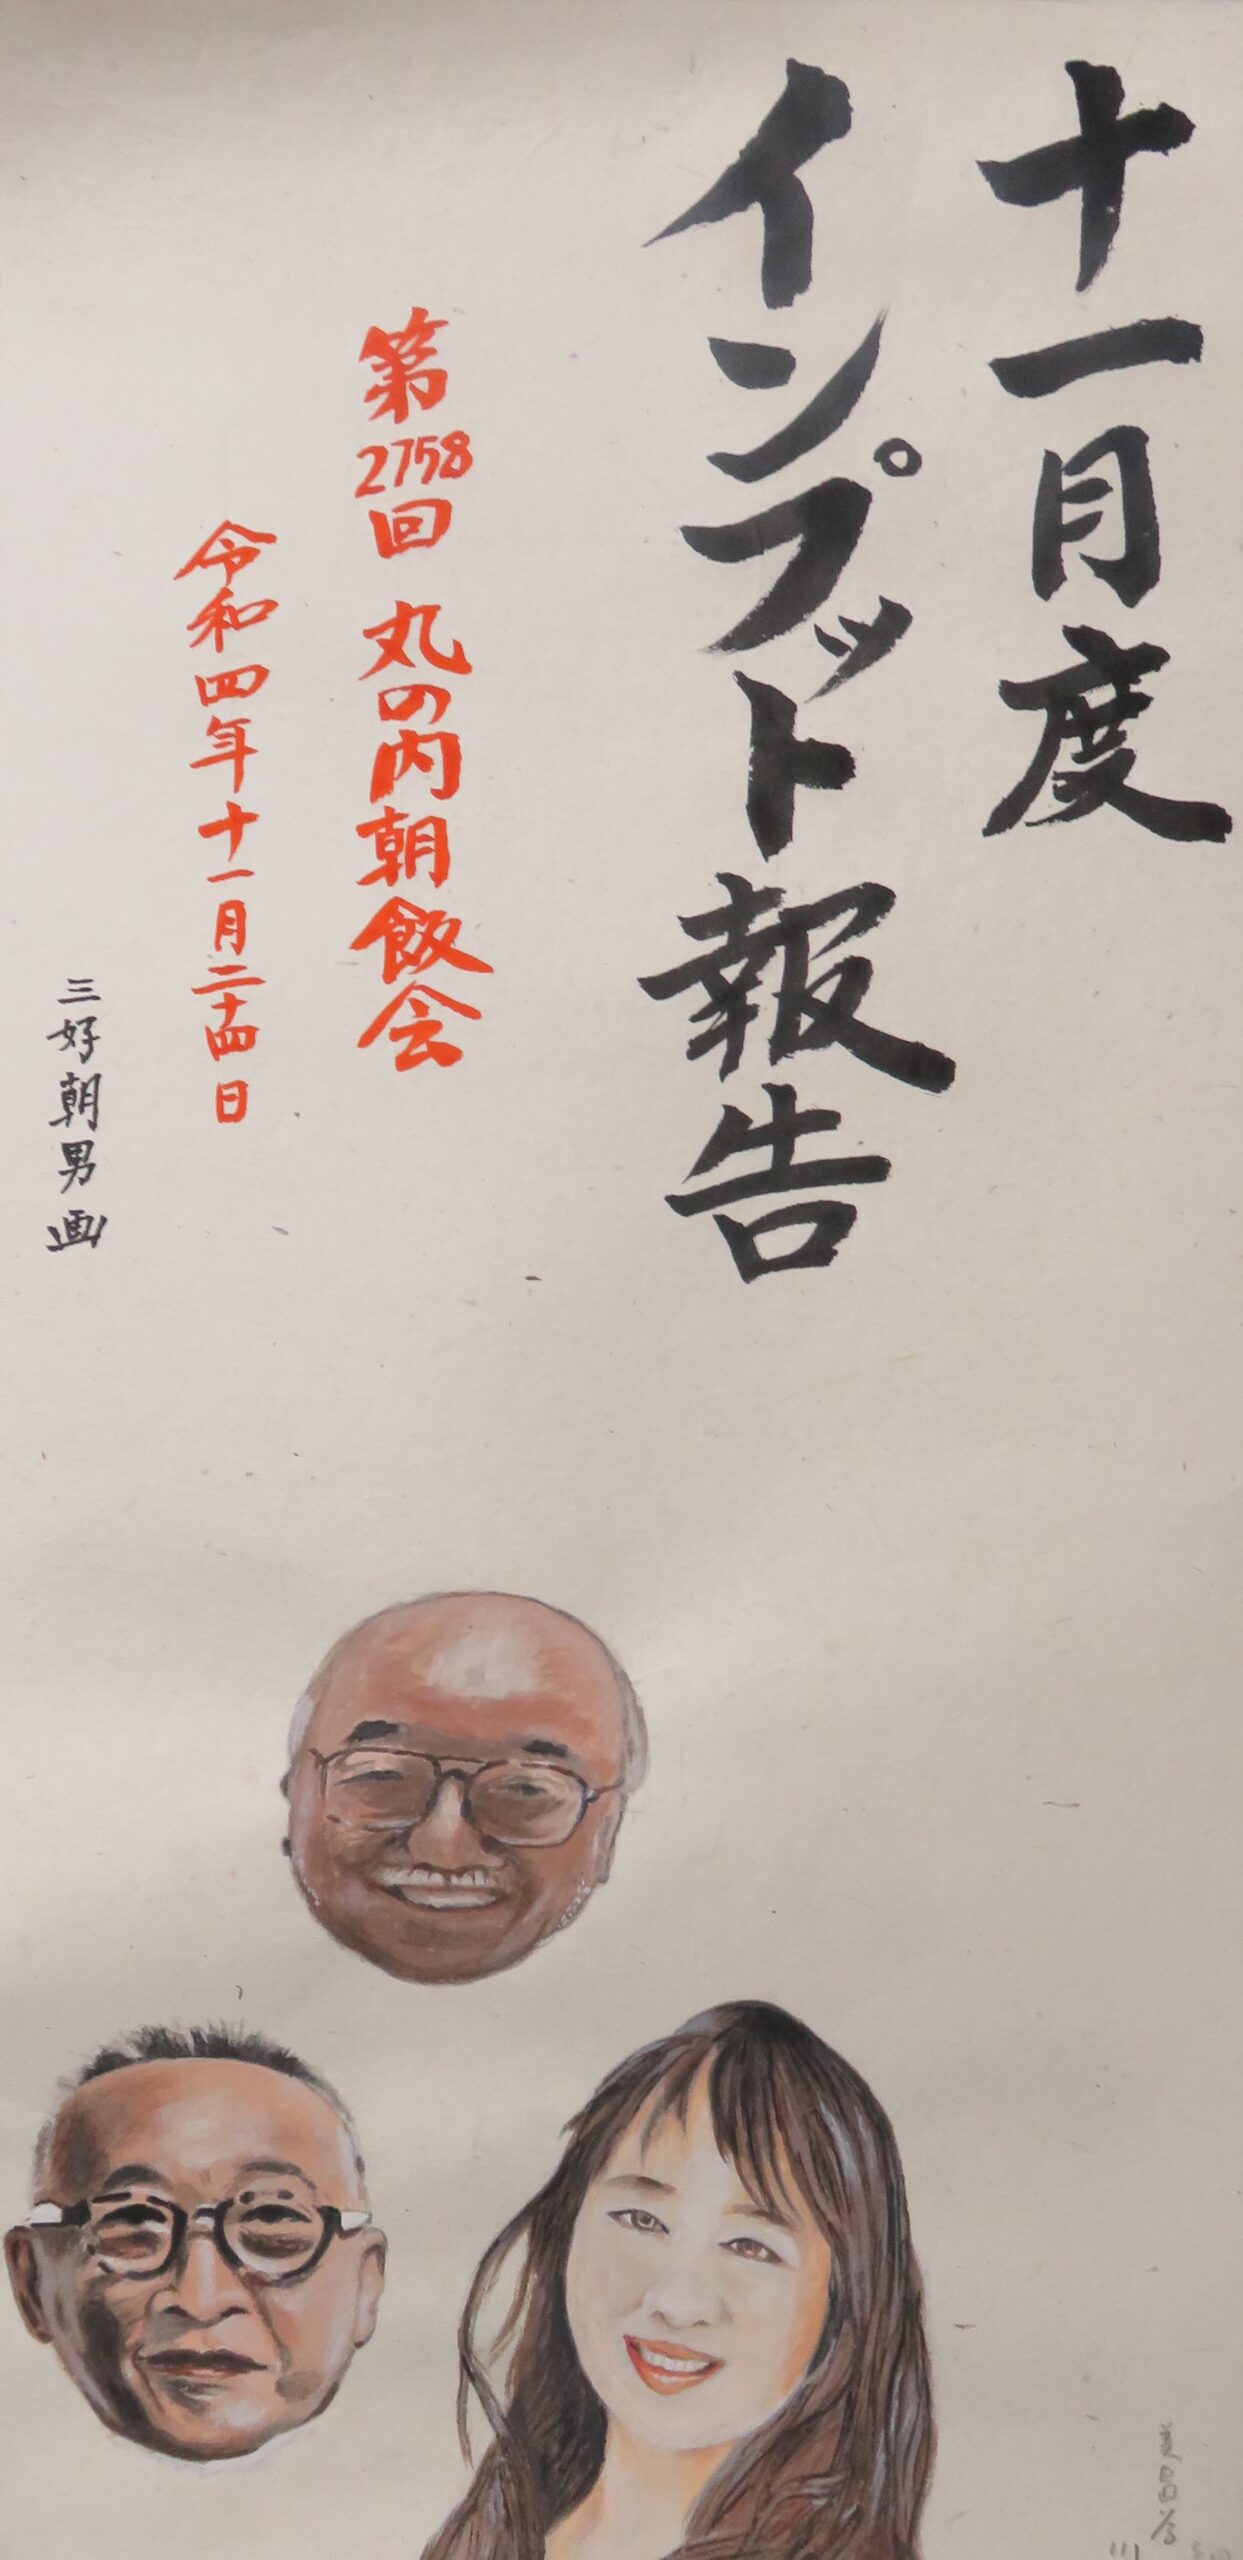 十一月度
インプット報告
第2758回 丸の内朝飯会
令和四年十一月二十四日
三好朝男画